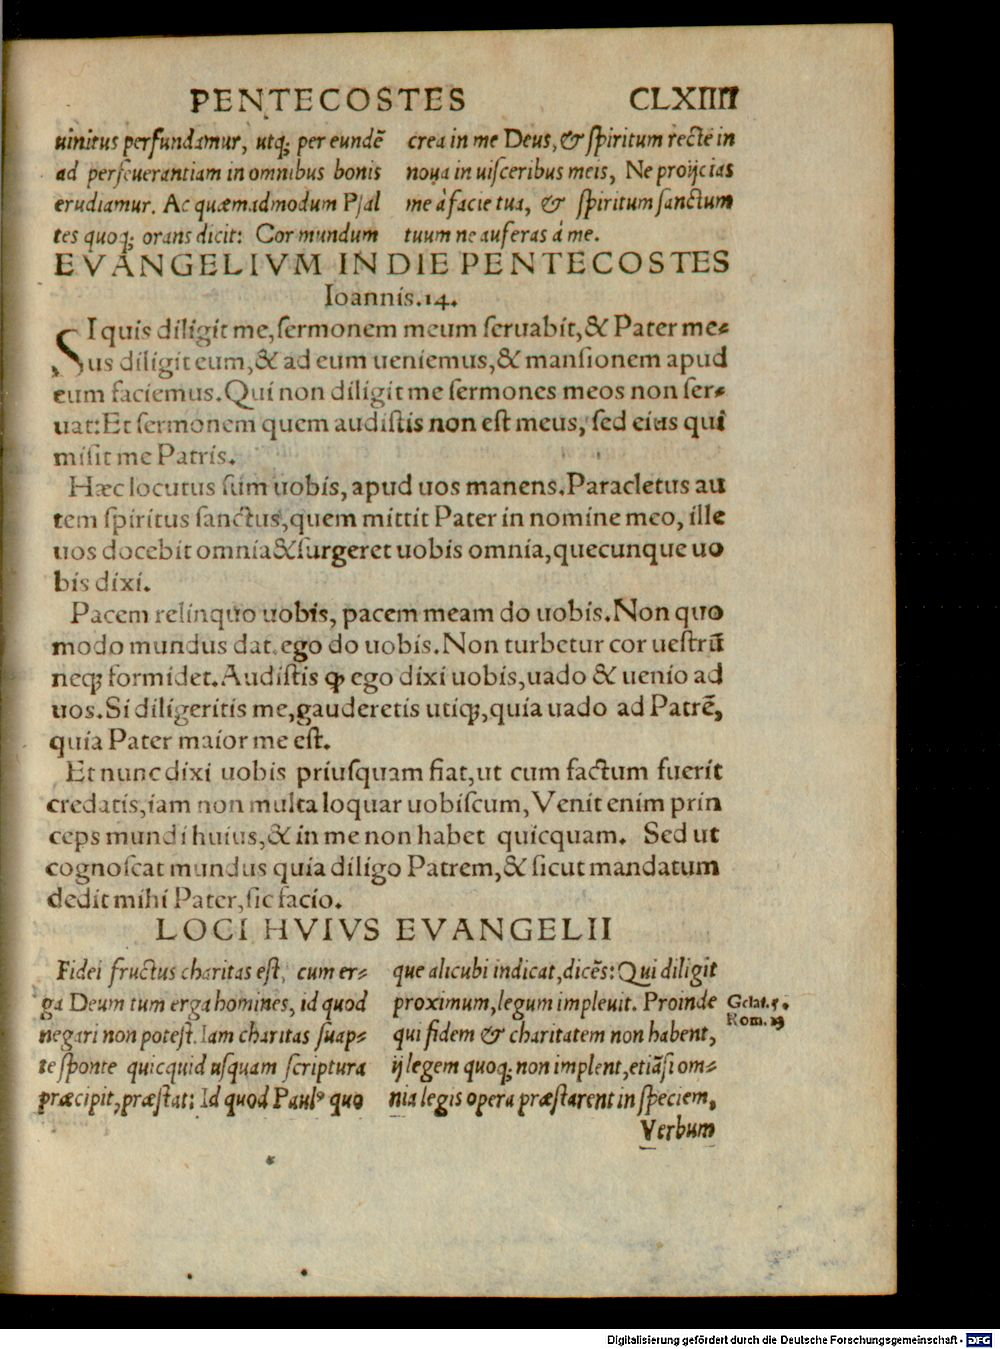 PENTECOSTES CLXIIII
uinitus perfundamur, utq; per eundē
ad perſeuerantiam in omnibus bonis
erudiamur. Ac quæmadmodum Pſal
tes quoq; orans dicit: Cor mundum
crea in me Deus, & ſpiritum recte in
noua in uiſceribus meis, Ne proijcias
me à facie tua, & ſpiritum ſanctum
tuum ne auferas á me.
EVANGELIVM IN DIE PENTECOSTES
Ioannis.14.
SI quis diligit me, ſermonem meum ſeruabit, & Pater me⸗
us diligit eum, & ad eum ueniemus, & manſionem apud
eum faciemus. Qui non diligit me ſermones meos non ſer⸗
uat: Et ſermonem quem audiſtis non eſt meus, ſed eius qui
miſit me Patris.
Hæc locutus ſum uobis, apud uos manens. Paracletus au
tem ſpiritus ſanctus, quem mittit Pater in nomine meo, ille
uos docebit omnia & ſurgeret uobis omnia, quecunque uo
bis dixi.
Pacem relinquo uobis, pacem meam do uobis. Non quo
modo mundus dat, ego do uobis. Non turbetur cor ueſtrū
neq; formidet. Audiſtis ꝙ ego dixi uobis, uado & uenio ad
uos. Si diligeritis me, gauderetis utiq;, quia uado ad Patrē,
quia Pater maior me eſt.
Et nunc dixi uobis priuſquam fiat, ut cum factum fuerit
credatis, iam non multa loquar uobiſcum, Venit enim prin
ceps mundi huius, & in me non habet quicquam. Sed ut
cognoſcat mundus quia diligo Patrem, & ſicut mandatum
dedit mihi Pater, ſic facio.
LOCI HVIVS EVANGELII
Fidei fructus charitas eſt, cum er⸗
ga Deum tum erga homines, id quod
negari non poteſt. Iam charitas ſuap⸗
te ſponte quicquid uſquam ſcriptura
præcipit, præſtat: Id quod Paulꝰ quo
que alicubi indicat, dicēs: Qui diligit
proximum, legum impleuit. Proinde
qui fidem & charitatem non habent,
ij legem quoq; non implent, etiāſi om⸗
nia legis opera præſtarent in ſpeciem,
Verbum
Galat.5.
Rom.13
Digitalisierung gefördert durch die Deutsche Forschungsgemeinschaft - DFG